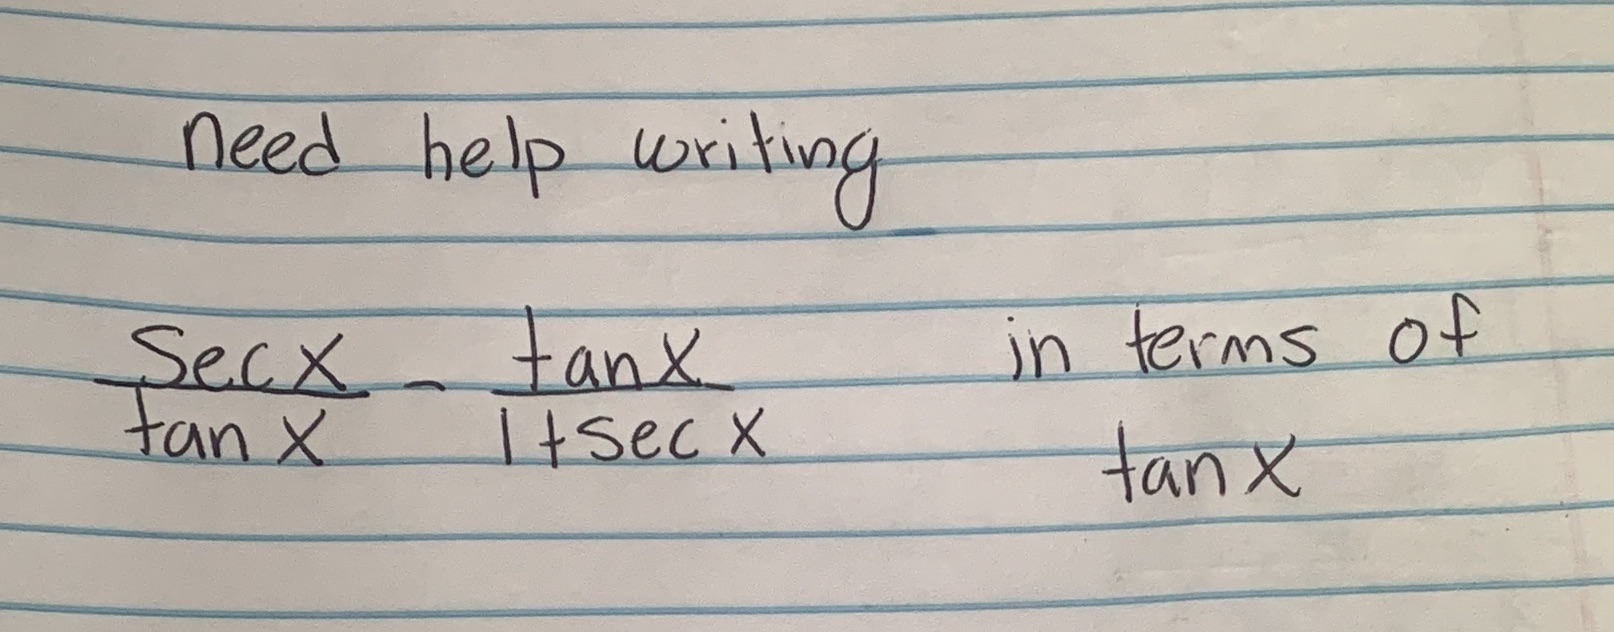 need help writing
sec x / tan x - tan x / 1 + sec x in terms of
tan x